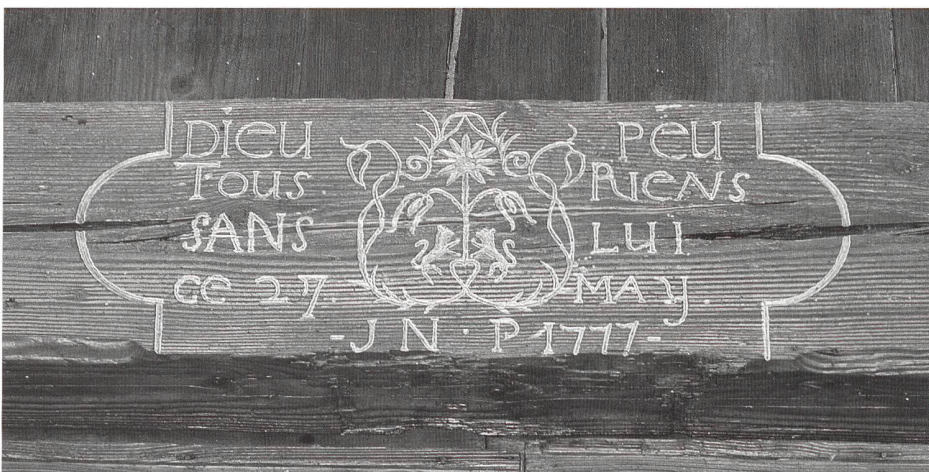 DiEU PEU
TOUS RIENS
SANS LUI
CE 27. MAY.
- J N · P 1777 -